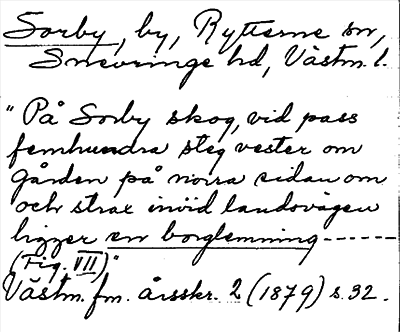 Sorby, by, Rytterne sn,
Snevringe hd, Västm. l.
"På Sorby skog, vid pass
femhundra steg vester om
gården på norra sidan om
och strax invid landsvägen
ligger en borglemning------
(Fig. VII)"
Västm. fm. årsskr. 2 (1879) s. 32.